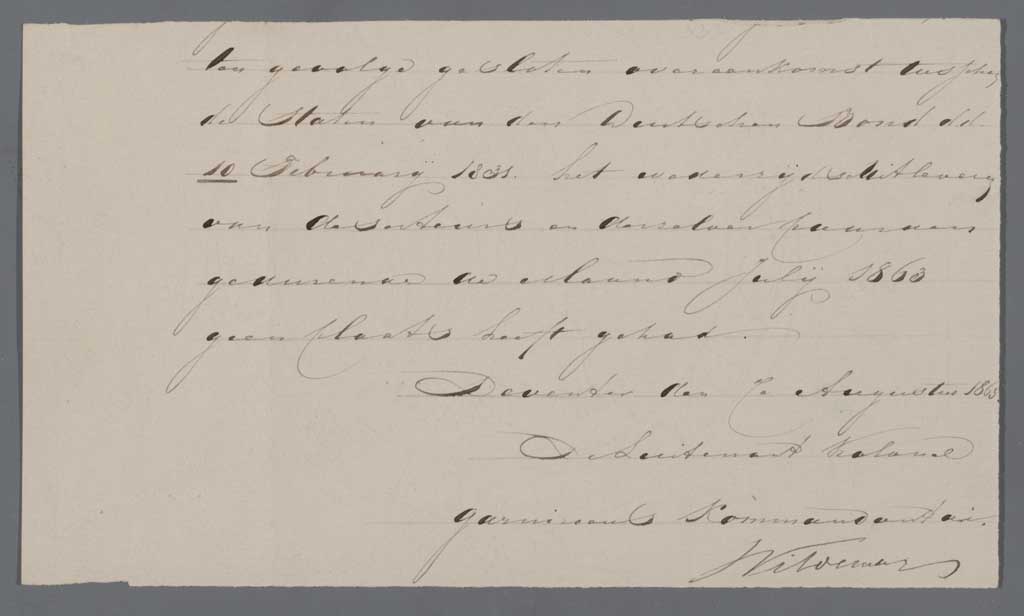 ten gevolge gesloten overeenkomst tusschen
de Staten van den Duitschen Bond dd.
10 Februarij 1831. het wederzijdsch uitlevering
van deserteurs en derzelver paarden
gedurende de Maand Julij 1863
geen plaats heeft gehad.
Deventer den Augustus 1863.
De Luitenant Kolonel
garnizoens Kommandant